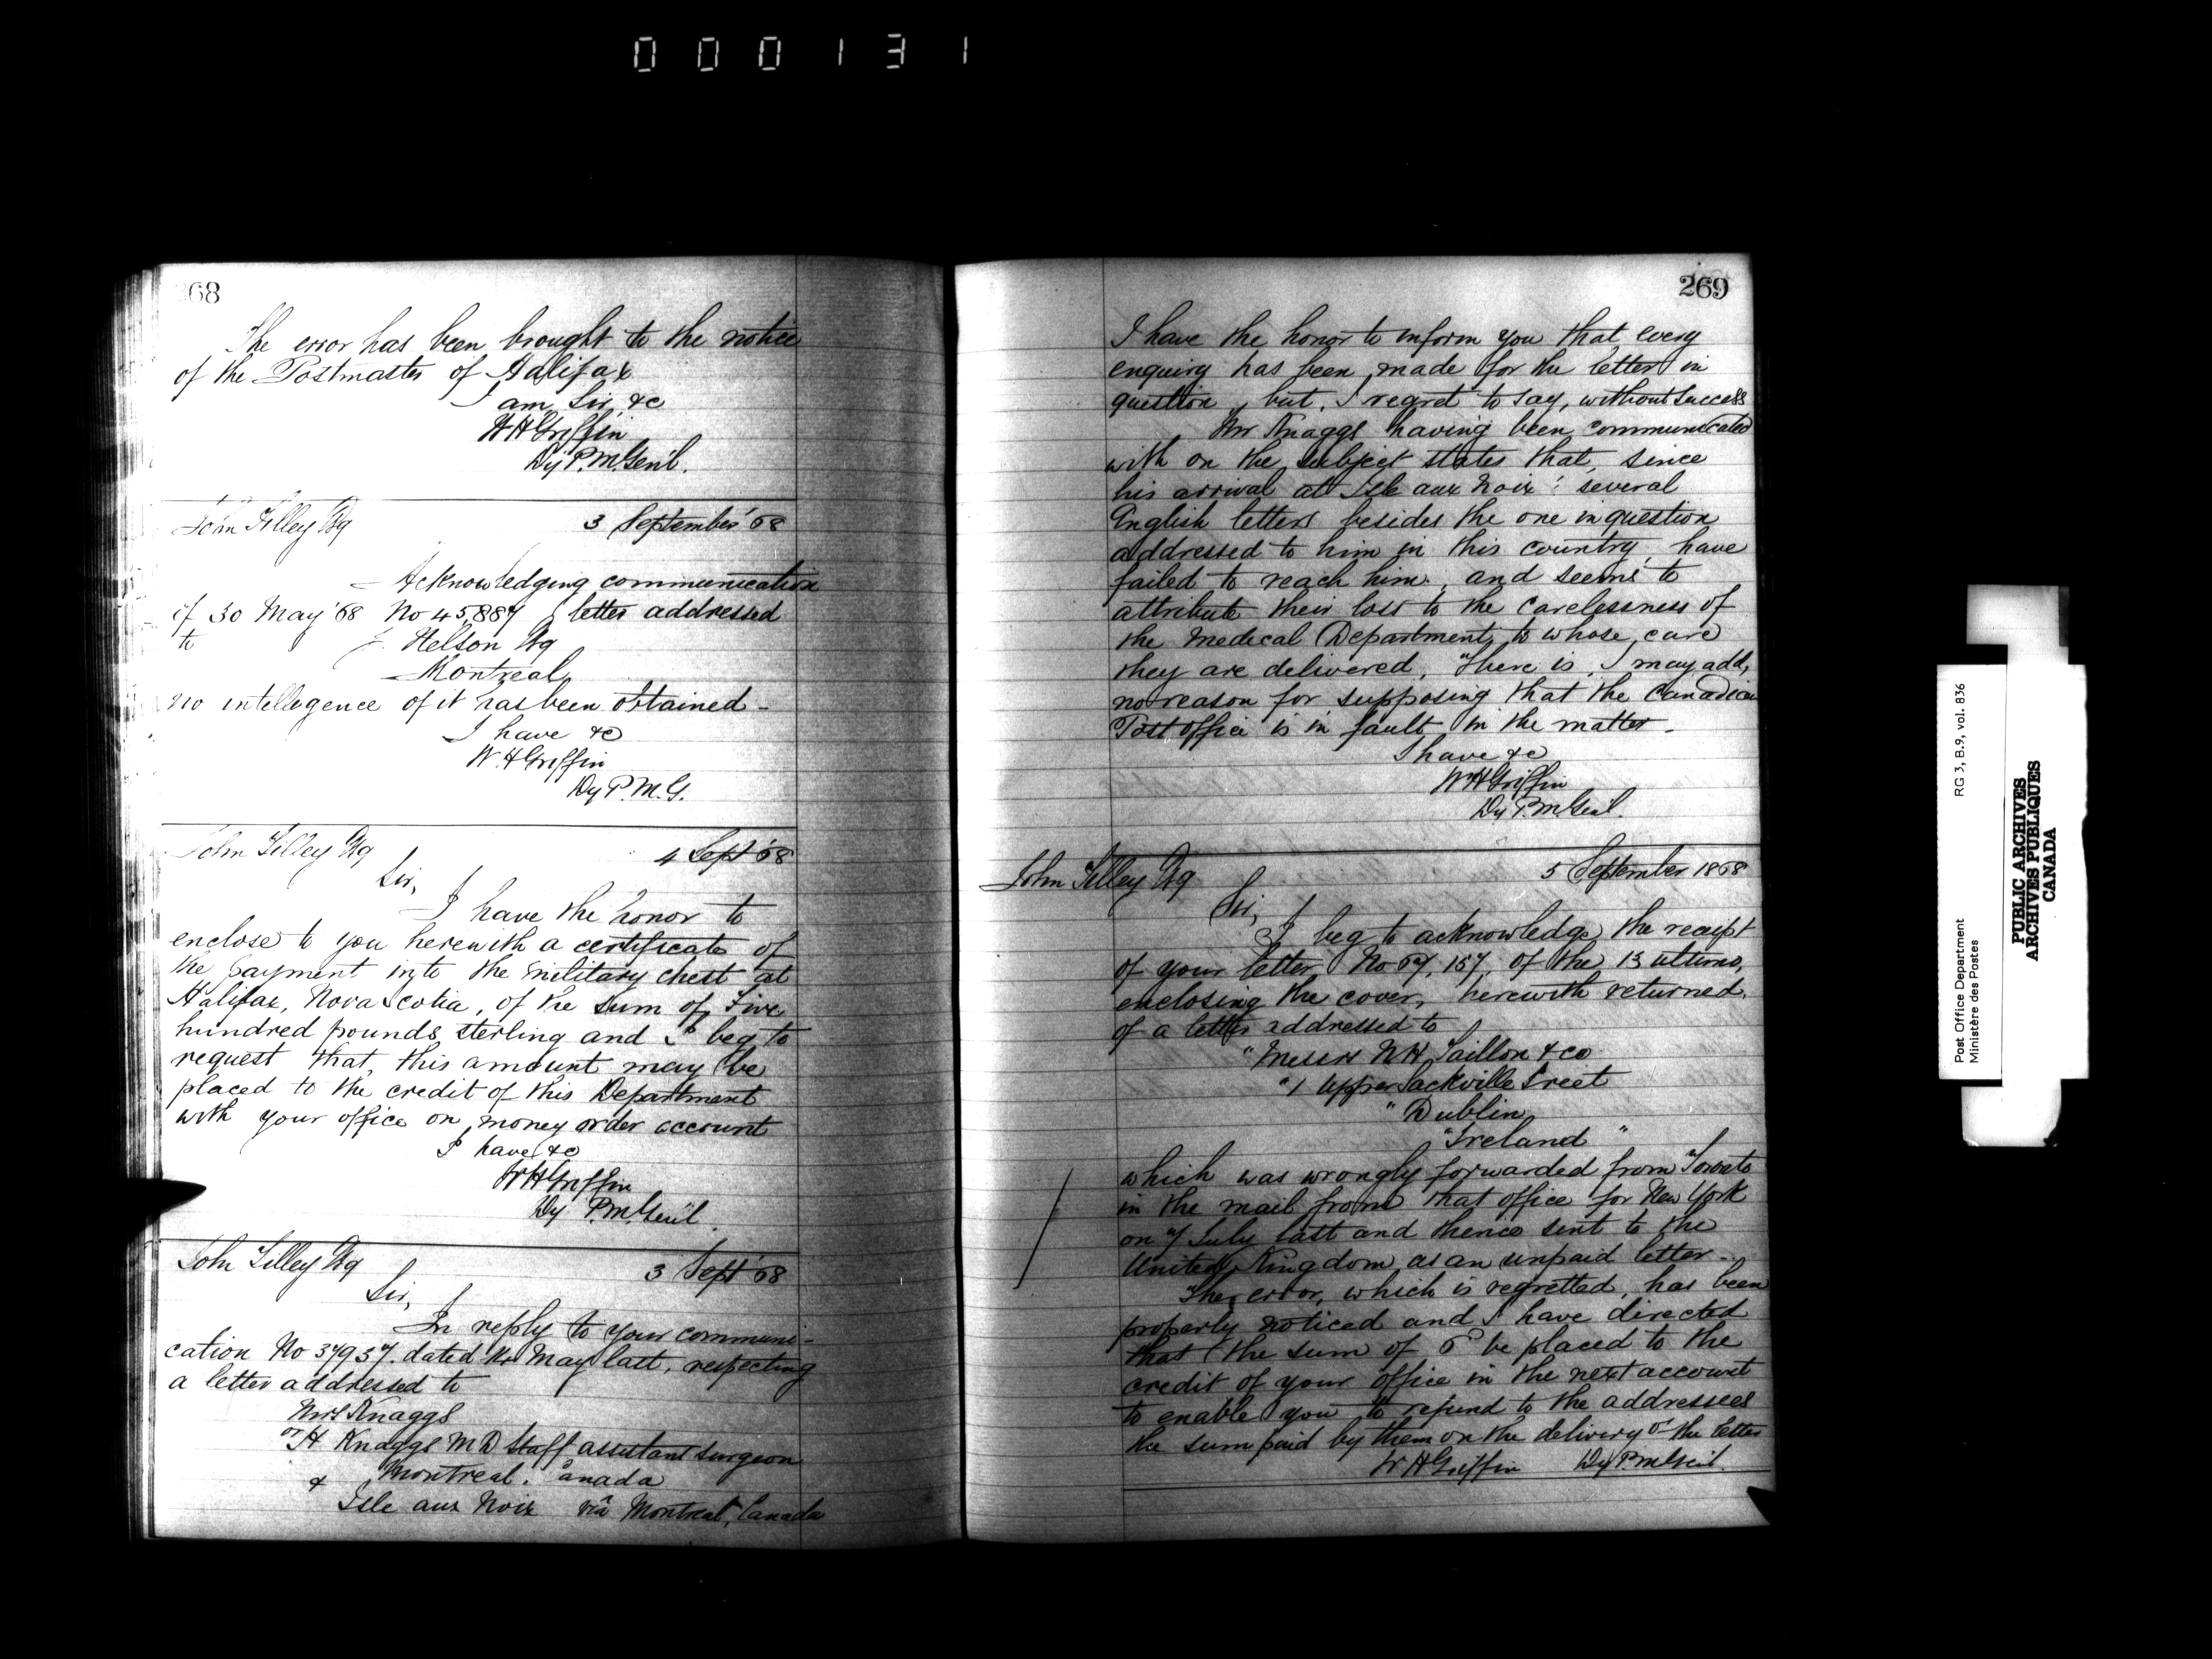 000131
268
The error has been brought to the notice
of the Postmaster of Halifax
I am, Sir, &c
W H Griffin
Dy P. M. Gen'l.
John Tilley Esq
3 September '68
Acknowledging communication
of 30 May '68 No 45,887 letter addressed
to
J. Nelson Esq
Montreal
no intellegence of it has been obtained -
I have &c
W. H Griffin
Dy P. M. G.
John Tilley Esq
4 Sept '68
Sir,
I have the honor to
enclose to you herewith a certificate of
the payment into the military chest at
Halifax, Nova Scotia, of the sum of Five
hundred pounds sterling and I beg to
request that this amount may be
placed to the credit of this Department
with your office on money order account
I have &c
W H Griffin
Dy P. M. Gen'l.
John Tilley Esq
3 Sept '68
Sir,
In reply to your communi-
cation No 37937. dated May last, respecting
a letter addressed to
Mrs Knaggs
or H Knaggs M D Staff assistant surgeon
Montreal. Canada
&
Isle aux Noix via Montreal, Canada
269
I have the honor to inform you that every
enquiry has been made for the letter in
question, but, I regret to say, without success
Mr Knaggs having been communicated
with on the subject states that, since
his arrival at Isle aux Noix several
English letters besides the one in question
addressed to him in this country, have
failed to reach him, and seems to
attribute their loss to the carelessness of
the Medical Department, to whose care
they are delivered. There is, I may add,
no reason for supposing that the Canadian
Post office is in fault in the matter -
I have &c
W H Griffin
Dy P. M. Genl.
John Tilley Esq
5 September 1868
Sir,
I beg to acknowledge the receipt
of your letter No 67,157, of the 13 ultimo,
enclosing the cover, herewith returned,
of a letter addressed to
"Messrs N H Taillon & co
"1 Upper Sackville Street
"Dublin
"Ireland"
which was wrongly forwarded from Toronto
in the mail from that office for New York
on 7 July last and thence sent to the
United Kingdom as an unpaid letter -
The error, which is regretted, has been
properly noticed and I have directed
that the sum of 6d be placed to the
credit of your office in the next account
to enable you to refund to the addressees
the sum paid by them on the delivery of the letter
W H Griffin Dy P. M. Genl.
Post Office Department RG 3, B.9, vol. 836
Ministère des Postes
PUBLIC ARCHIVES
ARCHIVES PUBLIQUES
CANADA